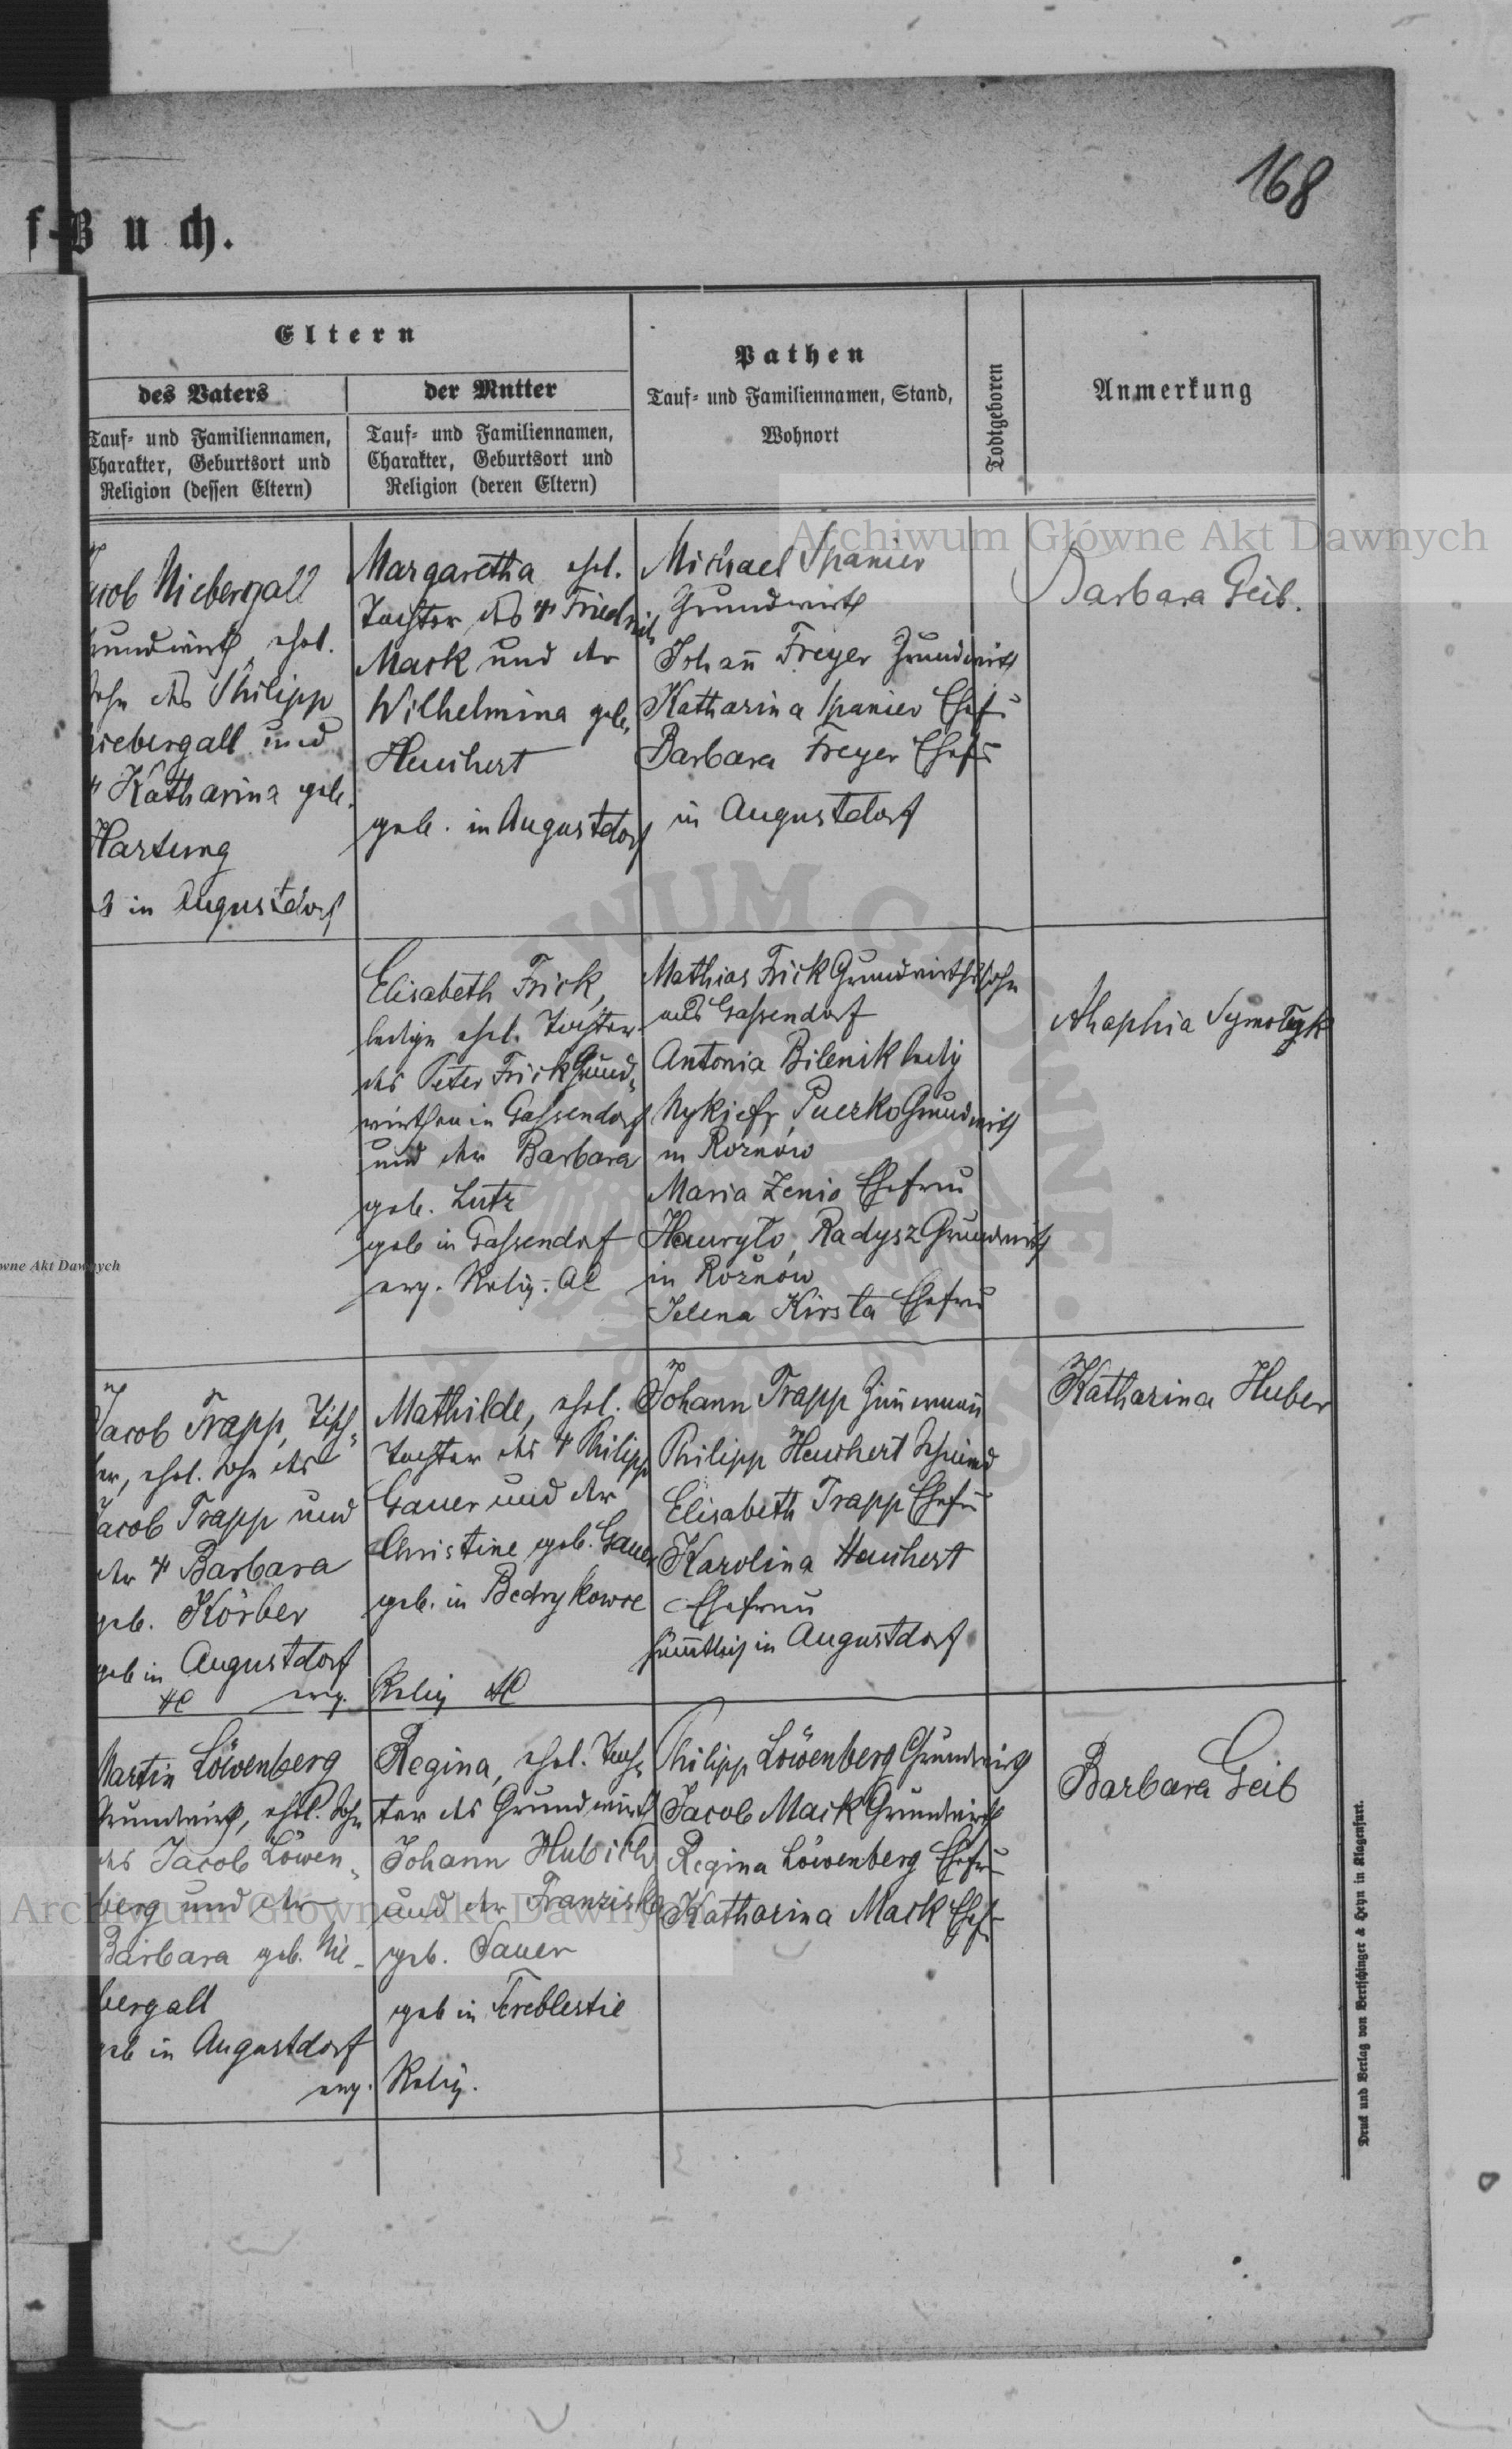 168
f-Buch.
Eltern
des Vaters
Tauf- und Familiennamen,
Charakter, Geburtsort und
Religion (dessen Eltern)
der Mutter
Tauf- und Familiennamen,
Charakter, Geburtsort und
Religion (deren Eltern)
Pathen
Tauf- und Familiennamen, Stand,
Wohnort
Todtgeboren
Anmerkung
Archiwum Główne Akt Dawnych
Jacob Niebergall
Grundwirth, ehel.
Sohn des Philipp
Niebergall und
† Katharina geb.
Hartung
geb in Augustdorf
Margaretha ehel.
Tochter des † Friedrich
Mack und der
Wilhelmina geb.
Heuchert
geb. in Augustdorf
Michael Spanier
Grundwirth
Johañ Freyer Grundwirth
Katharina Spanier Ehefr
Barbara Freyer Ehefr
in Augustdorf
Barbara Geib.
Elisabeth Frick,
ledige ehel. Tochter
des Peter Frick Grund-
wirthen in Gassendorf
und der Barbara
geb. Lutz
geb in Gassendorf
evg. Relig. AC
Mathias Frick Grundwirthssohn
aus Gassendorf
Antonia Bilenik ledig
Nykiefr Puerko Grundwirth
in Rożnów
Maria Zenio Ehefrau
Hawryło Radysz Grundwirth
in Rożnów
Jelena Kirsta Ehefrau
Ahaphia
wne Akt Dawnych
Jacob Trapp, Tisch-
ler, ehel. Sohn des
Jacob Trapp und
der † Barbara
geb. Körber
geb in Augustdorf
AC evg.
Mathilde, ehel.
Tochter des † Philipp
Gauer und der
Christine geb. Gauer
geb. in Bedrykowce
Relig AC
Johann Trapp Zim̃ermañ
Philipp Heuchert Schmied
Elisabeth Trapp Ehefr
Karolina Heuchert
Ehefrau
sämtlich in Augustdorf
Katharina Huber
Martin Löwenberg
Grundwirth, ehel. Sohn
des Jacob Löwen-
berg und der
Barbara geb. Nie-
bergall
geb in Augustdorf
evg.
Regina, ehel. Toch-
ter des Grundwirth
Johann Hubich
und der Franziska
geb. Sauer
geb in Tereblestie
Relig.
Philipp Löwenberg Grundwirth
Jacob Mack Grundwirth
Regina Löwenberg Ehefr
Katharina Mack Ehefr
Barbara Geib
Archiwum Główne Akt Dawnych
Druck und Verlag von Bertschinger & Heyn in Klagenfurt.